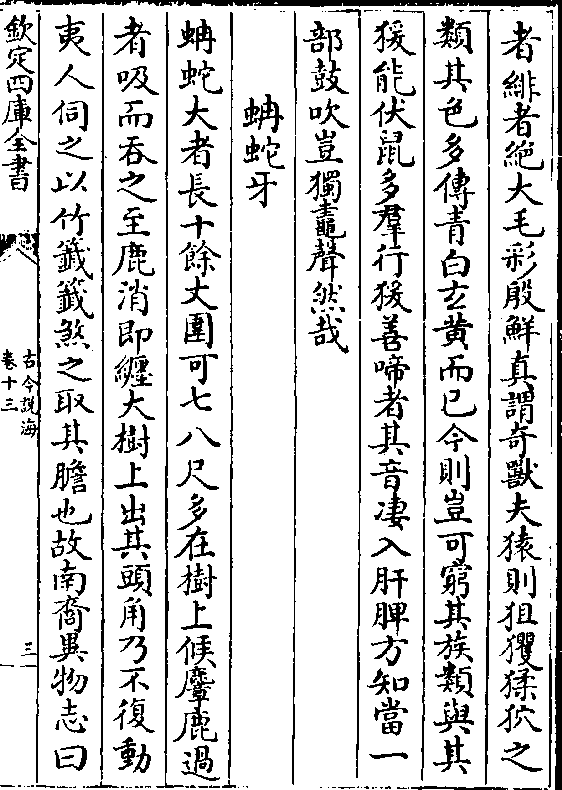 者緋者絕大毛彩殷鮮真謂奇獸夫猿則狙玃猱狖之
類其色多傳青白玄黄而已今則豈可窮其族類與其
猨能伏鼠多羣行猨善啼者其音凄入肝脾方知當一
部鼓吹豈獨鼃聲然哉
蚺蛇牙
蚺蛇大者長十餘丈圍可七八尺多在樹上候麞鹿過
者吸而吞之至鹿消即纏大樹上出其頭角乃不復動
夷人伺之以竹籖籖煞之取其膽也故南裔異物志曰
欽定四庫全書
古今說海
卷十三
三